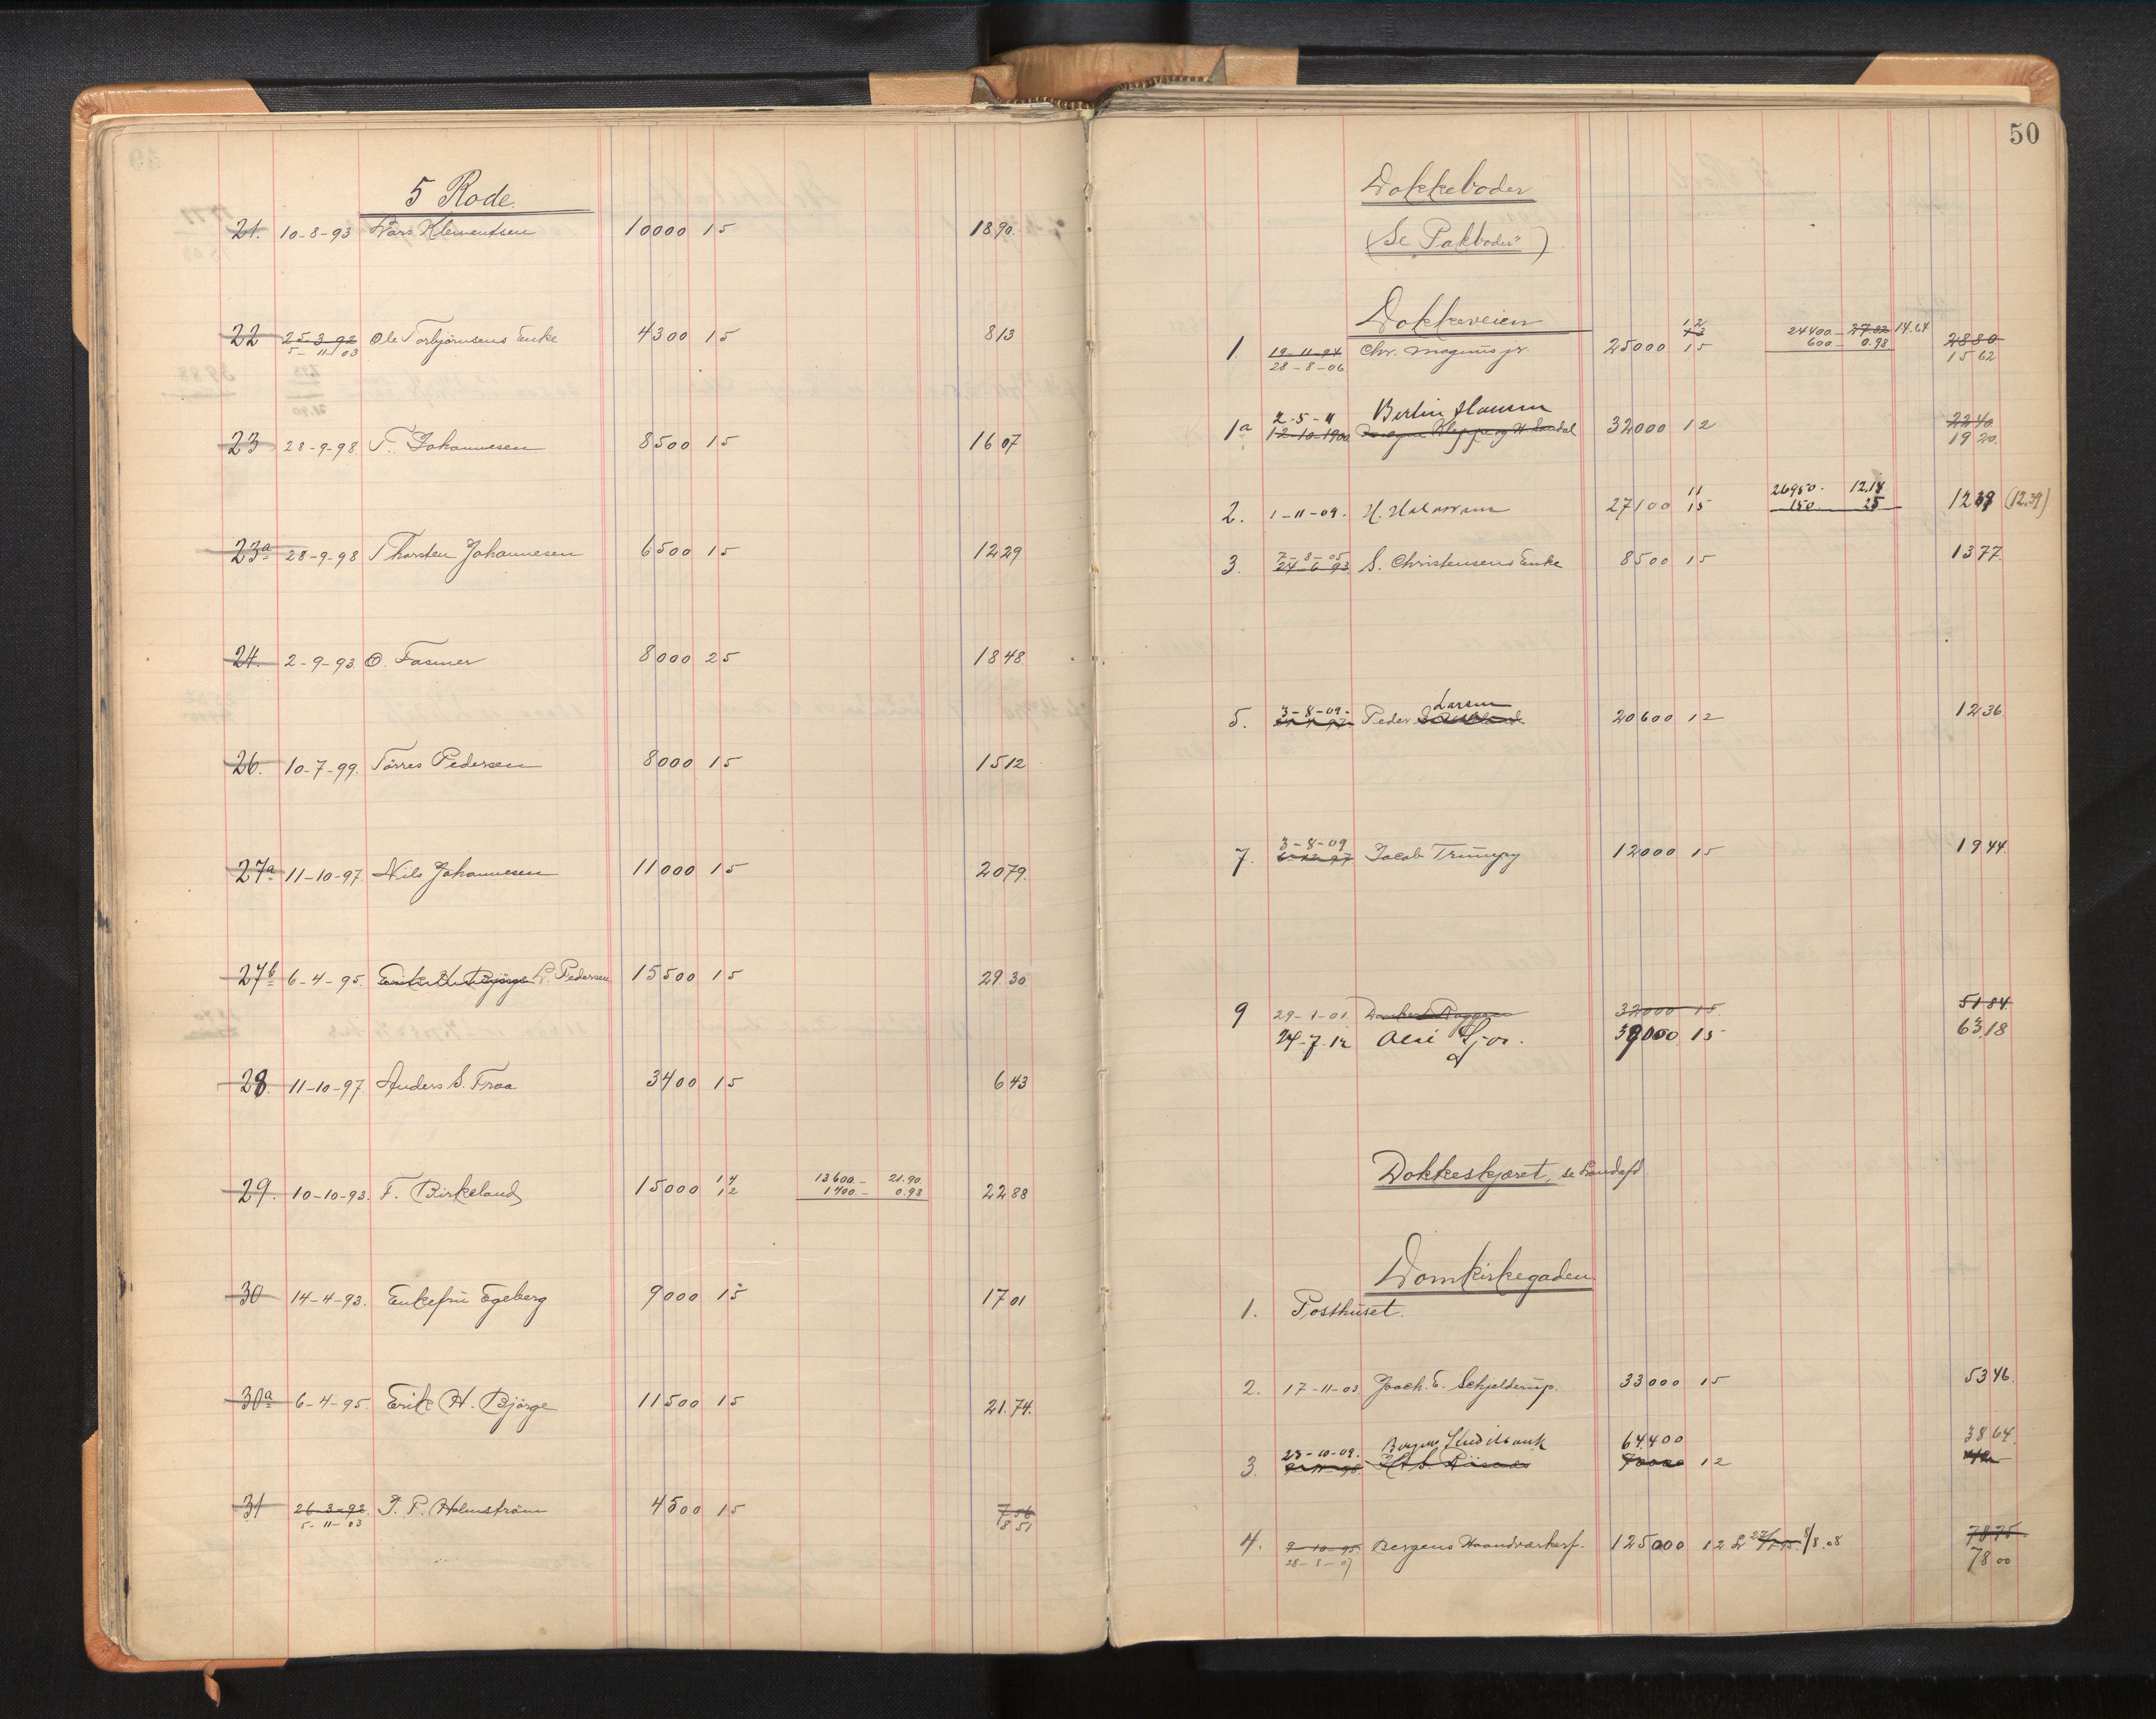 5 Rode.
21. 10-8-93 Lars Klementsen 10000 15 18 90.
22 25-3-92 Ole Torbjörnsens Enke 4300 15 8 13
5-11-03
23 28-9-98 T. Johannesen 8500 15 16 07
23a 28-9-98 Thorsten Johannesen 6500 15 12 29
24. 2-9-93 O. Fasmer 8000 25 18 48
26. 10-7-99. Törres Pedersen 8000 15 15 12
27a 11-10-97. Nils Johannesen 11000 15 20 79.
27b 6-4-95. Erik H. Bjørge L. Pedersen 15500 15 29 30
28. 11-10-97 Anders S. Traa 3400 15 6 43
13600.- 21.90.
29. 10-10-93. F. Birkeland 15000 14 12 1400.- 0.98 22 88
30 14-4-93. Enkefrü Egeberg 9000 15 17 01
30a 6-4-95. Erik H. Bjørge 11500 15 21.74.
31 26-3-92. J. P. Holmström 4500 15 7 56
5-11-03 8 51
50
Dokkeboder
(Se Pakboder)
Dokkeveien
12
13 24400.- 27.82 14.64
1. 19-11-94 Chr. Magnus jr. 25000 15 600- 0.98 28 80.
28-8-06 15 62
2-5-11 Hansen
1a 12-10-1900 32000 12 22 40.
19 20.
11 26950.- 12.14
2. 1-11-09. H. 27100 15 150. 25 12 39 (12.39)
7-8-05
3. 24-6-93 S. Christensens Enke 8500 15 13 77.
3-8-09. Larsen
5. Peder 20600 12 12 36
3-8-09
7. 6-12-97 Jacob Trumpy 12000 15 19 44.
9 29-1-01. 32000 15. 51 84.
24-7-12 39000 15 63 18
Dokkeskjæret, se Strandafd.
Domkirkegaden
1. Posthuset.
2. 17-11-03. Joach. E. Schjelderup. 33000 15 53 46.
23-10-09. Bergens Kreditbank 64400 38 64.
3. 12
4. 9-10-95. Bergens Haandværkerf. 125000 12 8/8.08 78 75.
28-8-07 78 00